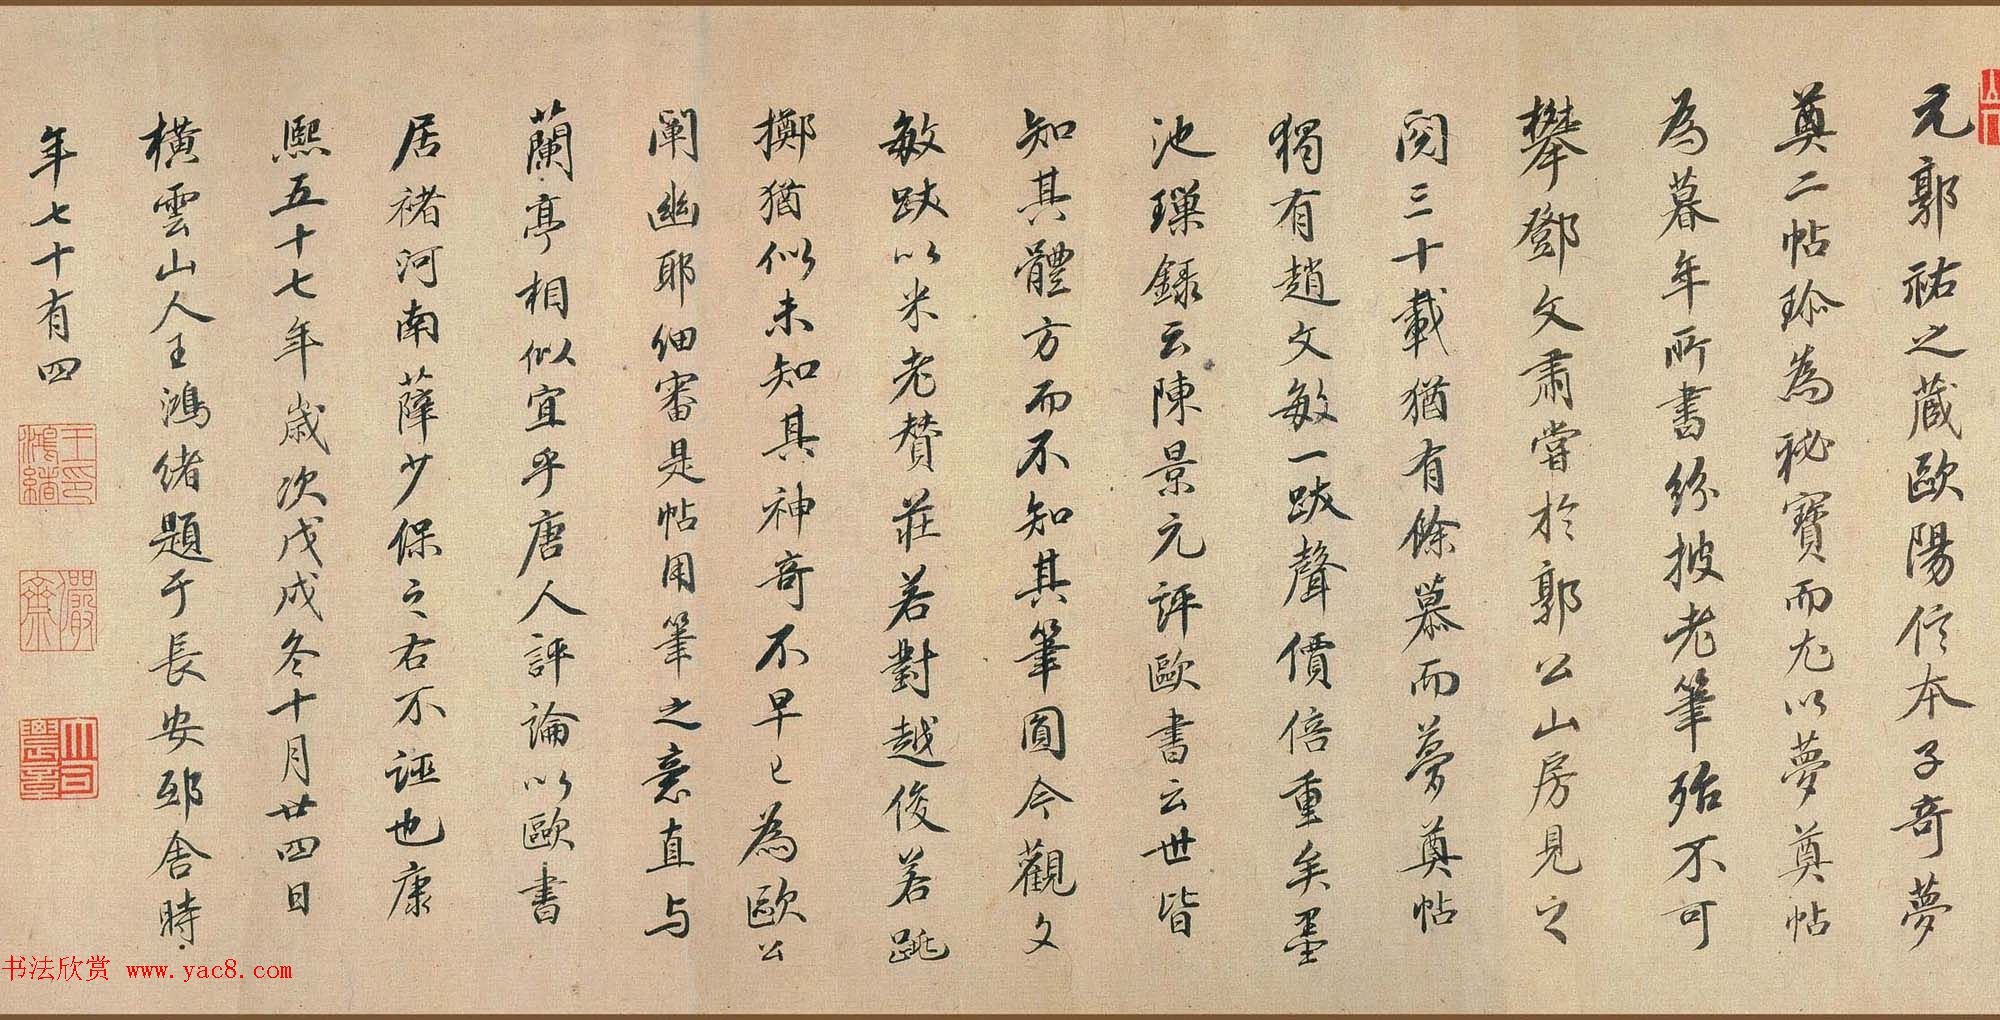 元郭祐之蔵歐陽信本子奇夢
奠二帖珎為祕寶而尤以夢奠帖
為暮年所書紛披老筆殆不可
攀鄧文肅嘗於郭公山房見之
閲三十載猶有餘慕而夢奠帖
獨有趙文敏一跋聲價倍重矣墨
池璅錄云陳景元評歐書云世皆
知其體方而不知其筆圓今觀文
敏跋以米老賛莊若對越俊若跳
擲猶似未知其神奇不早已為歐公
闡幽耶細審是帖用筆之意直与
蘭亭相似宜乎唐人評論以歐書
居褚河南薛少保之右不誣也康
熙五十七年歲次戊戌冬十月廿四日
橫雲山人王鴻緒題于長安邸舍時
年七十有四
王印鴻緒
儼齋
書法欣赏 www.yac8.com